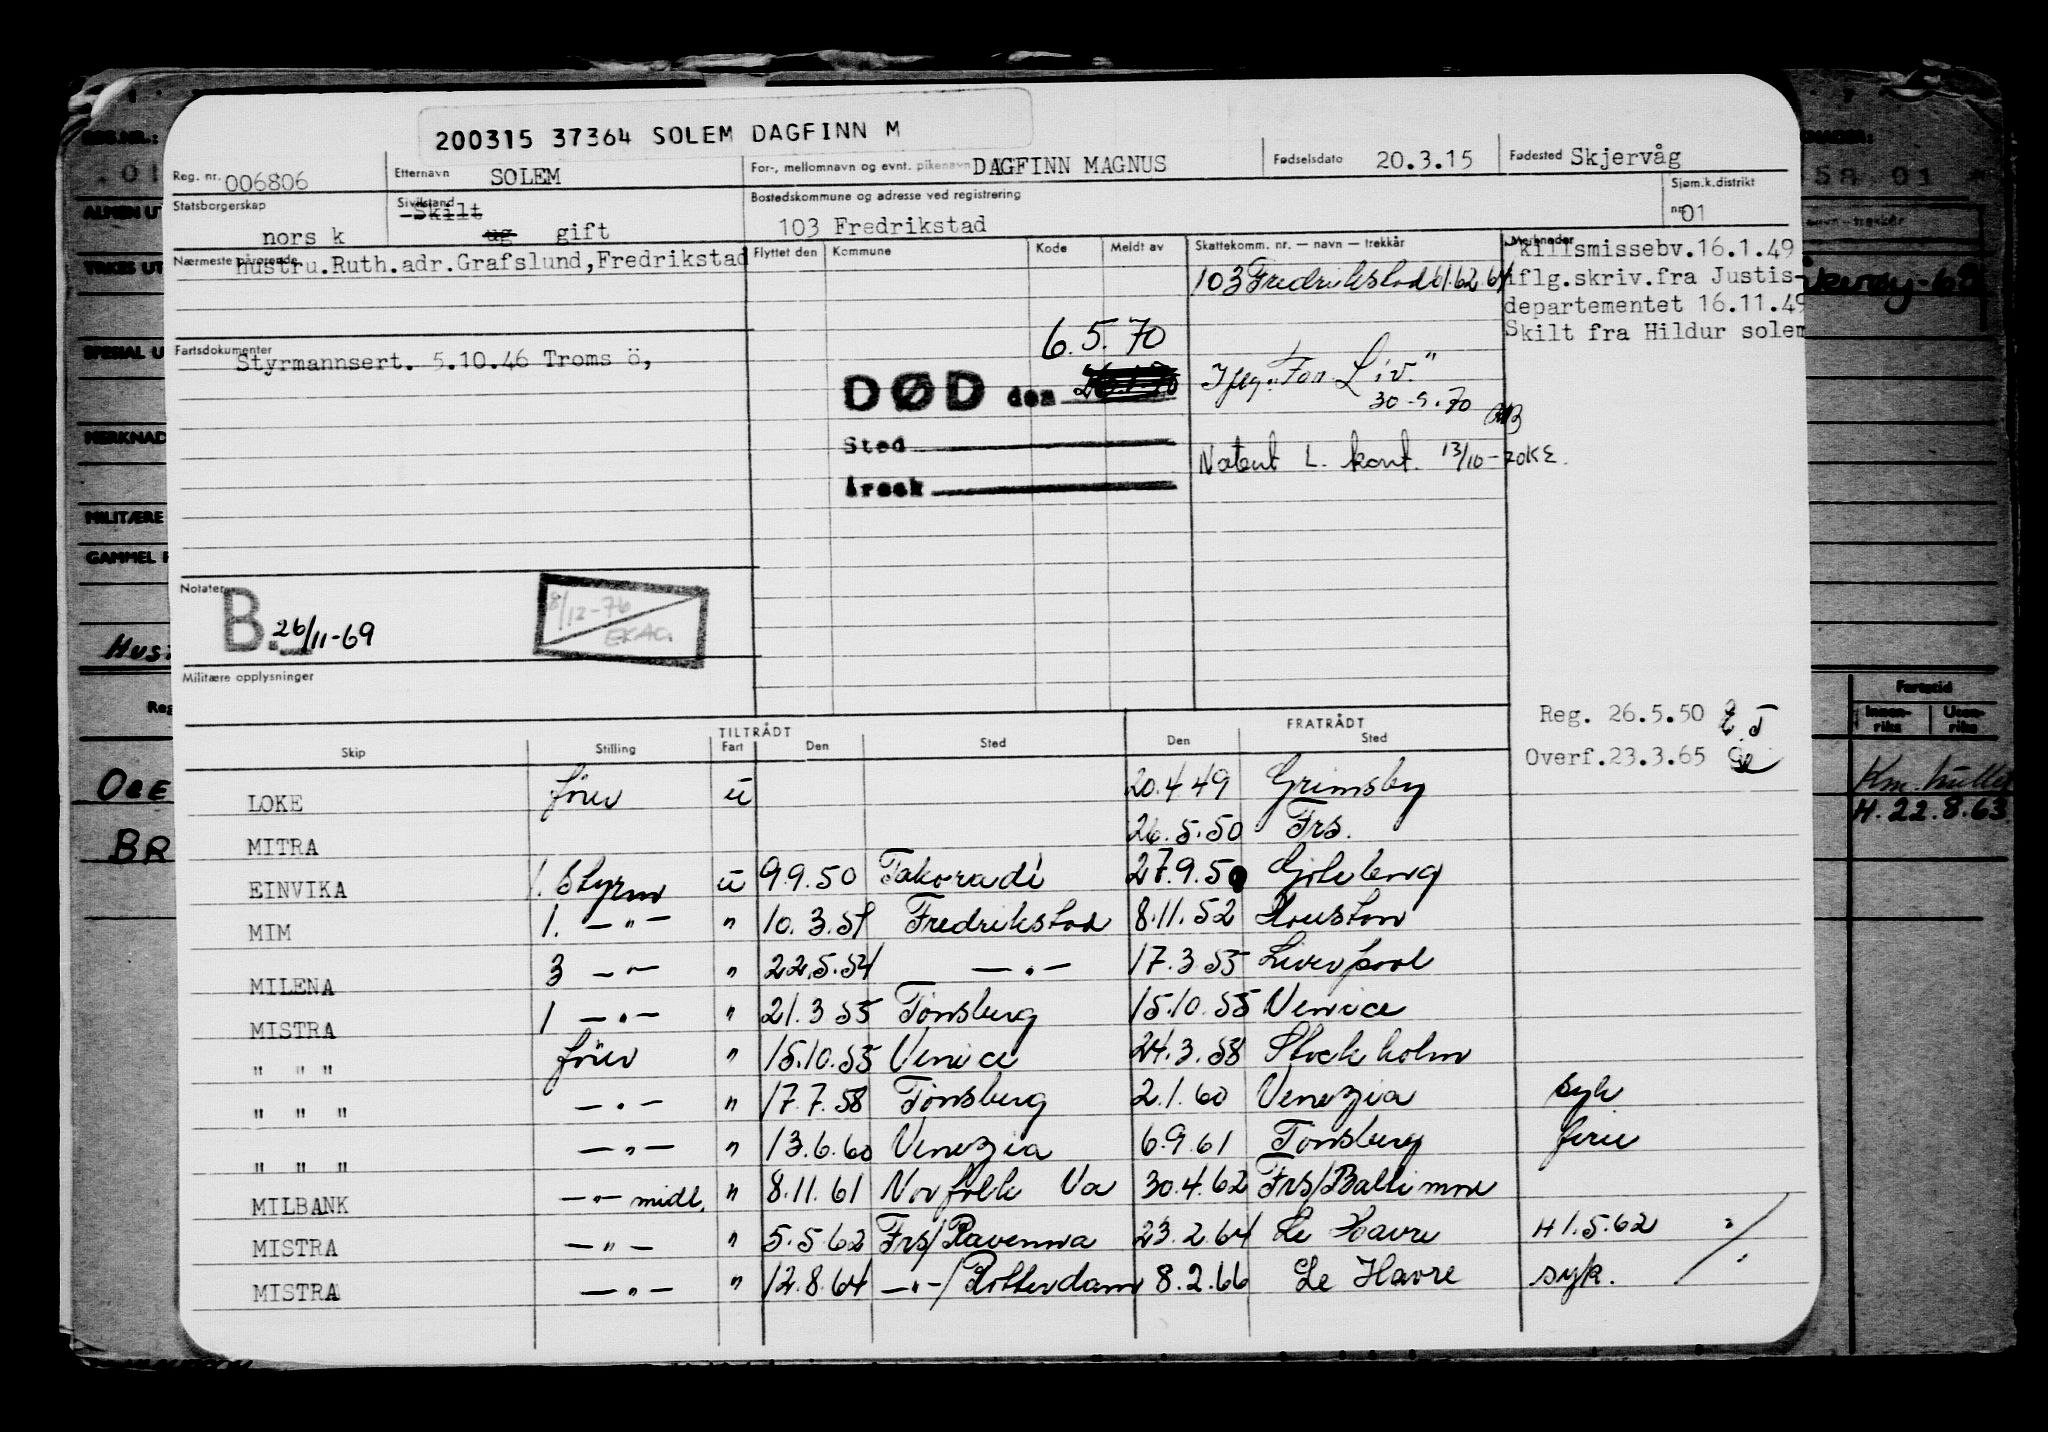 200315 37364 SOLEM DAGFINN M
Reg. nr. 006806 Etternavn SOLEM For-, mellomnavn og evnt. pikenavn DAGFINN MAGNUS Fødselsdato 20.3.15 Fødested Skjervåg
Statsborgerskap norsk Sivilstand Skilt ug gift Bostedskommune og adresse ved registrering 103 Fredrikstad Sjøm.k.distrikt nr. 01
Nærmeste pårørende Hustru.Ruth.adr.Grafslund,Fredrikstad
Flyttet den Kommune Kode Meldt av Skattekomm. nr. — navn — trekkår Merknader
103 Fredrikstad 61.62 64
killsmissebv.16.1.49
iflg.skriv.fra Justis-
departementet 16.11.49
Skilt fra Hildur solem
Fartsdokumenter
Styrmannsert. 5.10.46 Troms ö,
6.5.70
DØD den
Sted
Årsak
Iflg. "For Liv."
30-5-70
Notert L. kort. 13/10-70 KE.
Notater
B. 26/11-69
8/12-76
EKAC.
Militære opplysninger
Reg. 26.5.50
Overf.23.3.65
TILTRÅDT FRATRÅDT
Skip Stilling Fart Den Sted Den Sted
LOKE förer u 20.4 49 Grimsby
MITRA 26.5.50 Frs.
EINVIKA 1. Styrm u 9.9.50 Takoradi 27.9.50 Göteborg
MIM 1. —"— " 10.3.51 Fredrikstad 8.11.52 Houston
MILENA 3 —"— " 22.5.54 —"— 17.3.55 Liverpool
MISTRA 1 —"— " 21.3 55 Tönsberg 15.10.55 Venice
" " " förer " 15.10.55 Venice 24.3.58 Stockholm
" " " —"— " 17.7.58 Tönsberg 2.1.60 Venezia syk
" " " —"— " 13.6.60 Venezia 6.9.61 Tönsberg ferie
MILBANK —"— midl. " 8.11.61 Norfolk Va 30.4.62 Frs/Baltimore
MISTRA —"— " 5.5.62 Frs/Ravenna 23.2.64 Le Havre H 1.5.62
MISTRA —"— " 12.8.64 —"—/Rotterdam 8.2.66 Le Havre syk.
REG.NR.:
.01
ALMEN UT
YRKES UT
SPESIAL U
MERKNAD
MILITÆRE
GAMMEL
HUST
Reg
OLE
BR
58 01
Fartstid
Innen-riks Uten-riks
H. 22.8.63